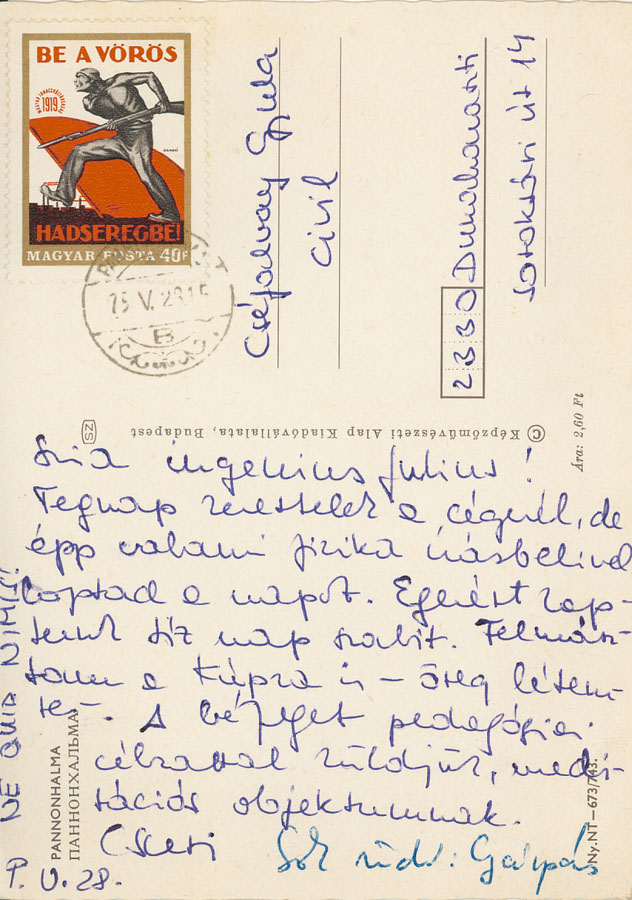 BE A VÖRÖS
1919
HADSEREGBE!
MAGYAR POSTA 40f
75 V. 28 15
B
Cséfalvay Gyula
civil
2330 Dunaharaszti
Soroksári út 14
Ára: 2,60 Ft
© Képzőművészeti Alap Kiadóvállalata, Budapest
SZ
Szia ingenius Julius!
Tegnap kerestelek a cégnél, de
épp valami fizika írásbelivel
loptad a napot. Egerést kap-
tunk tíz nap szabit. Felmász-
tam a kupra is – öreg létem-
re –. A bélyeget pedagógiai
célzattal küldjük, medi-
tációs objektumnak.
Cseti Sok üdv: Gáspár
P. V. 28.
NE QUID NIMIS!
PANNONHALMA
ПАННОНХАЛЬМА
Ny. NT—673/743.